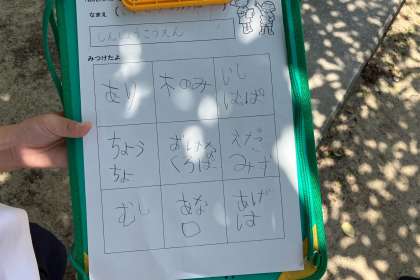 なまえ
しんりんこうえん
みつけたよ
あり
木のみ
いし
はっぱ
ちょう
ちょ
おいな
くろば
えだ
みず
むし
あな
口
あげ
は